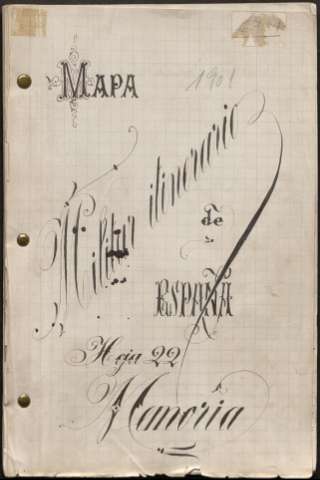 MAPA
1901
Militar itinerario
de
ESPAÑA
Hoja 22
Memoria